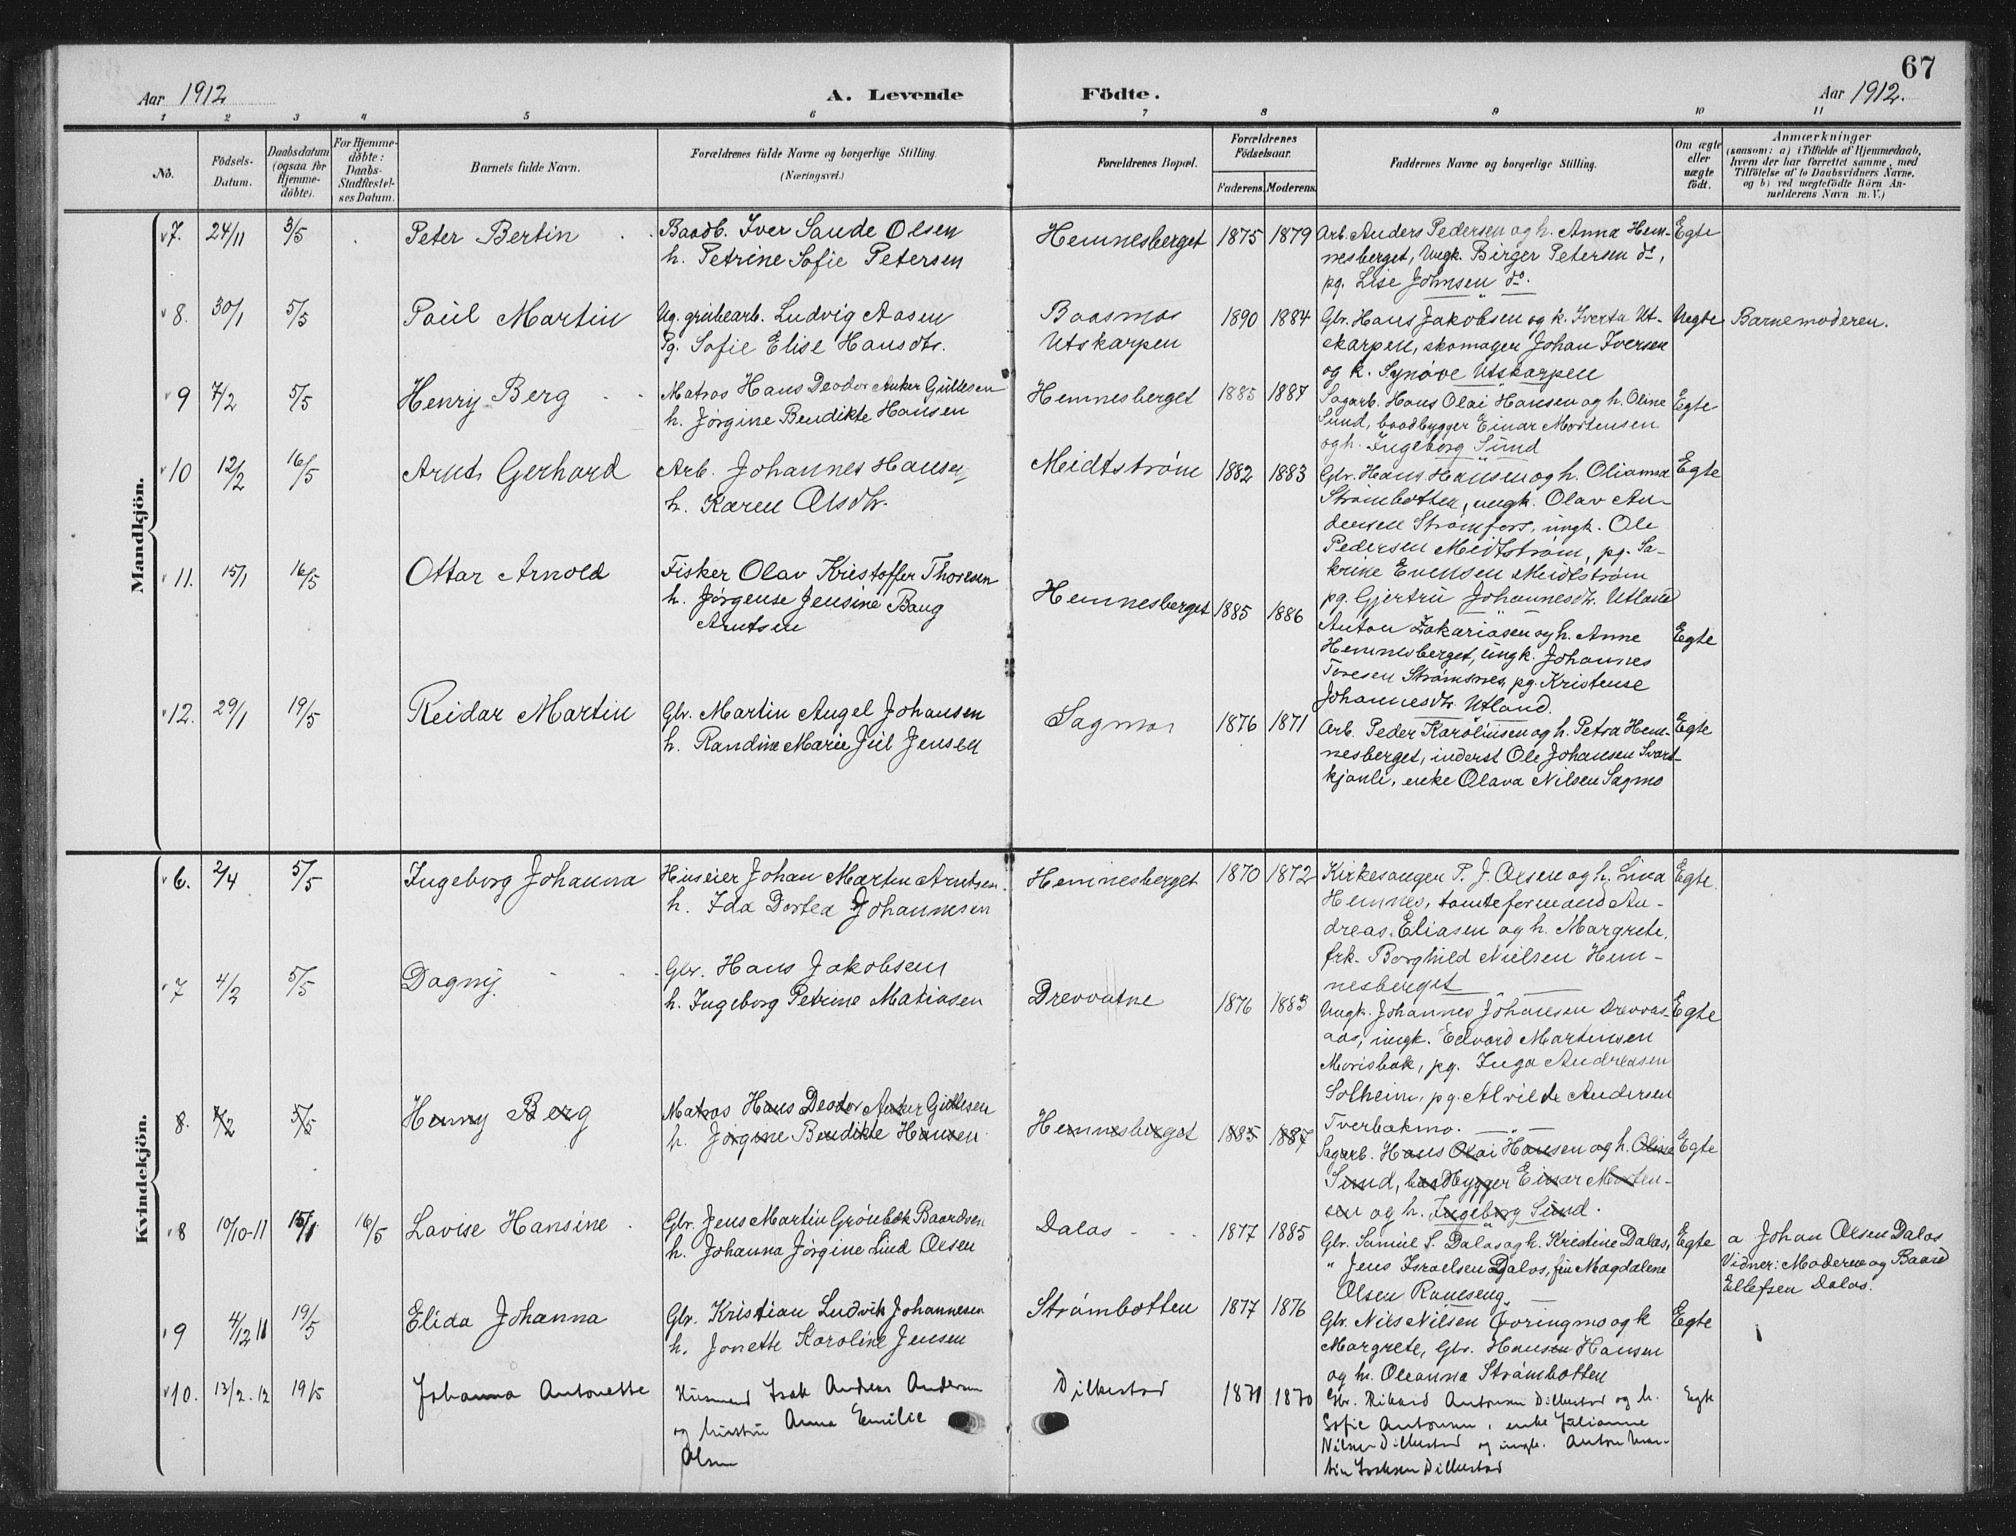 67
Aar 1912
A. Levende Födte.
Aar 1912.
1 2 3 4 5 6 7 8 9 10 11
No.
Födsels-Datum.
Daabsdatum (ogsaa for Hjemme-döbte).
For Hjemme-döbte: Daabs-Stadfæstel-ses Datum.
Barnets fulde Navn.
Forældrenes fulde Navne og borgerlige Stilling.
(Næringsvei.)
Forældrenes Bopæl.
Forældrenes Födselsaar.
Faderens. Moderens.
Faddernes Navne og borgerlige Stilling.
Om ægte eller uægte födt.
Anmærkninger
(saasom: a) i Tilfælde af Hjemmedaab,
hvem der har forrettet samme, med
Tilföielse af to Daabsvidners Navne,
og b) ved uægtefödte Börn An-
melderens Navn m. V.)
Mandkjön.
7. 24/11 3/5 Peter Bertin
Baadb. Iver Saude Olsen
h. Petrine Sofie Petersen
Hemnesberget 1875 1879
Arb. Anders Pedersen og h. Anna Hem-
nesberget, Ungk. Birger Petersen do,
pg. Lise Johnsen do.
Egte
8. 30/1 5/5 Paul Martin
Ug. grubearb. Ludvig Aasen
Pg. Sofie Elise Hansdtr.
Baasmo
Utskarpen
1890 1884
Gbr. Hans Jakobsen og k. Iverta Ut-
skarpen, skomager Johan Iversen
og k. Synøve Utskarpen
Uegte Barnemoderen.
9 7/2 5/5 Henry Berg
Matros Hans Deodor Anker Gullesen
h. Jørgine Bendikte Hansen
Hemnesberget 1885 1887
Sagarb. Hans Olai Hansen og h. Oline
Sund, baadbygger Einar Mortensen
og h. Ingeborg Sund
Egte
10 12/2 16/5 Arnt Gerhard
Arb. Johannes Hansen
h. Karen Olsdtr.
Meidtstrøm 1882 1883
Gbr. Hans Hansen og h. Olianna
Strømbotten, ungk. Olav An-
densen Strømfors, ungk. Ole
Pedersen Meidtstrøm, pg. Sa-
krine Evensen Meidtstrøm
pg. Gjertru Johannesdtr. Utland
Egte
11. 15/1 16/5 Ottar Arnold
Fisker Olav Kristoffer Thoresen
h. Jørgense Jensine Baug
Arntsen
Hemnesberget 1885 1886
Anton Zakariasen og h. Anne
Hemnesberget, ungk. Johannes
Toresen Strømsnes, pg. Kristense
Johannesdtr. Utland.
Egte
12. 29/1 19/5 Reidar Martin
Gbr. Martin Angel Johansen
h. Randine Marie Jul Jensen
Sagmo 1876 1871
Arb. Peder Karolinsen og h. Petra Hem-
nesberget, inderst Ole Johansen Svart-
kjønli, enke Olava Nilsen Sagmo
Egte
Kvindekjön.
6. 2/4 5/5 Ingeborg Johanna
Huseier Johan Martin Arntsen.
h. Ida Dortea Johannesen
Hemnesberget 1870 1872
Kirkesanger P. J. Olsen og h. Lina
Hemnes, tomteformand An-
dreas Eliasen og h. Margrete,
frk. Borghild Nielsen Hem-
nesberget
Egte
7 4/2 5/5 Dagny.
Gbr. Hans Jakobsen
h. Ingeborg Petrine Matiasen
Drevvatne 1876 1883
Ungk. Johannes Johansen Drevvas-
aas, ungk. Edvard Martinsen
Morisbak, pg. Inga Andreasen
Solheim, pg. Alvilde Andersen
Tverbakmo.
Egte
8. 7/2 5/5 Henny Berg
Matros Hans Deodor Anker Gullesen
h. Jørgine Bendikte Hansen
Hemnesberget 1885 1887
Sagarb. Hans Olai Hansen og h. Oline
Sund, baadbygger Einar Morten-
sen og h. Ingeborg Sund.
Egte
8 10/10-11 15/1 16/5 Lovise Hansine
Gbr. Jens Martin Grønbek Baardsen
h. Johanna Jørgine Lind Olsen
Dalos 1877 1885
Gbr. Samuel S. Dalos og h. Kristine Dalos,
" Jens Israelsen Dalos, fru Magdalene
Olsen Raneseng
Egte
a Johan Olsen Dalos
Vidner: Moderen og Baard
Ellefsen Dalos.
9 4/12 11 19/5 Elida Johanna
Gbr. Kristian Ludvik Johannesen
h. Jonette Karoline Jensen
Strømbotten 1877 1876
Gbr. Nils Nilsen Tværingmo og k
Margrete, Gbr. Hans Hansen
og h. Oleanna Strømbotten
Egte
10. 13/2. 12 19/5 Johanna Antonette
Husmand Isak Andreas Andersen
og hustru Anna Emilie
Olsen
Dilkestad 1871 1870
Gbr. Rikard Antonsen Dilkestad og h.
Sofie Antonsen, enke Julianne
Nilsen Dilkestad og ungk. Anton Mar-
tin Isaksen Dilkestad
Egte